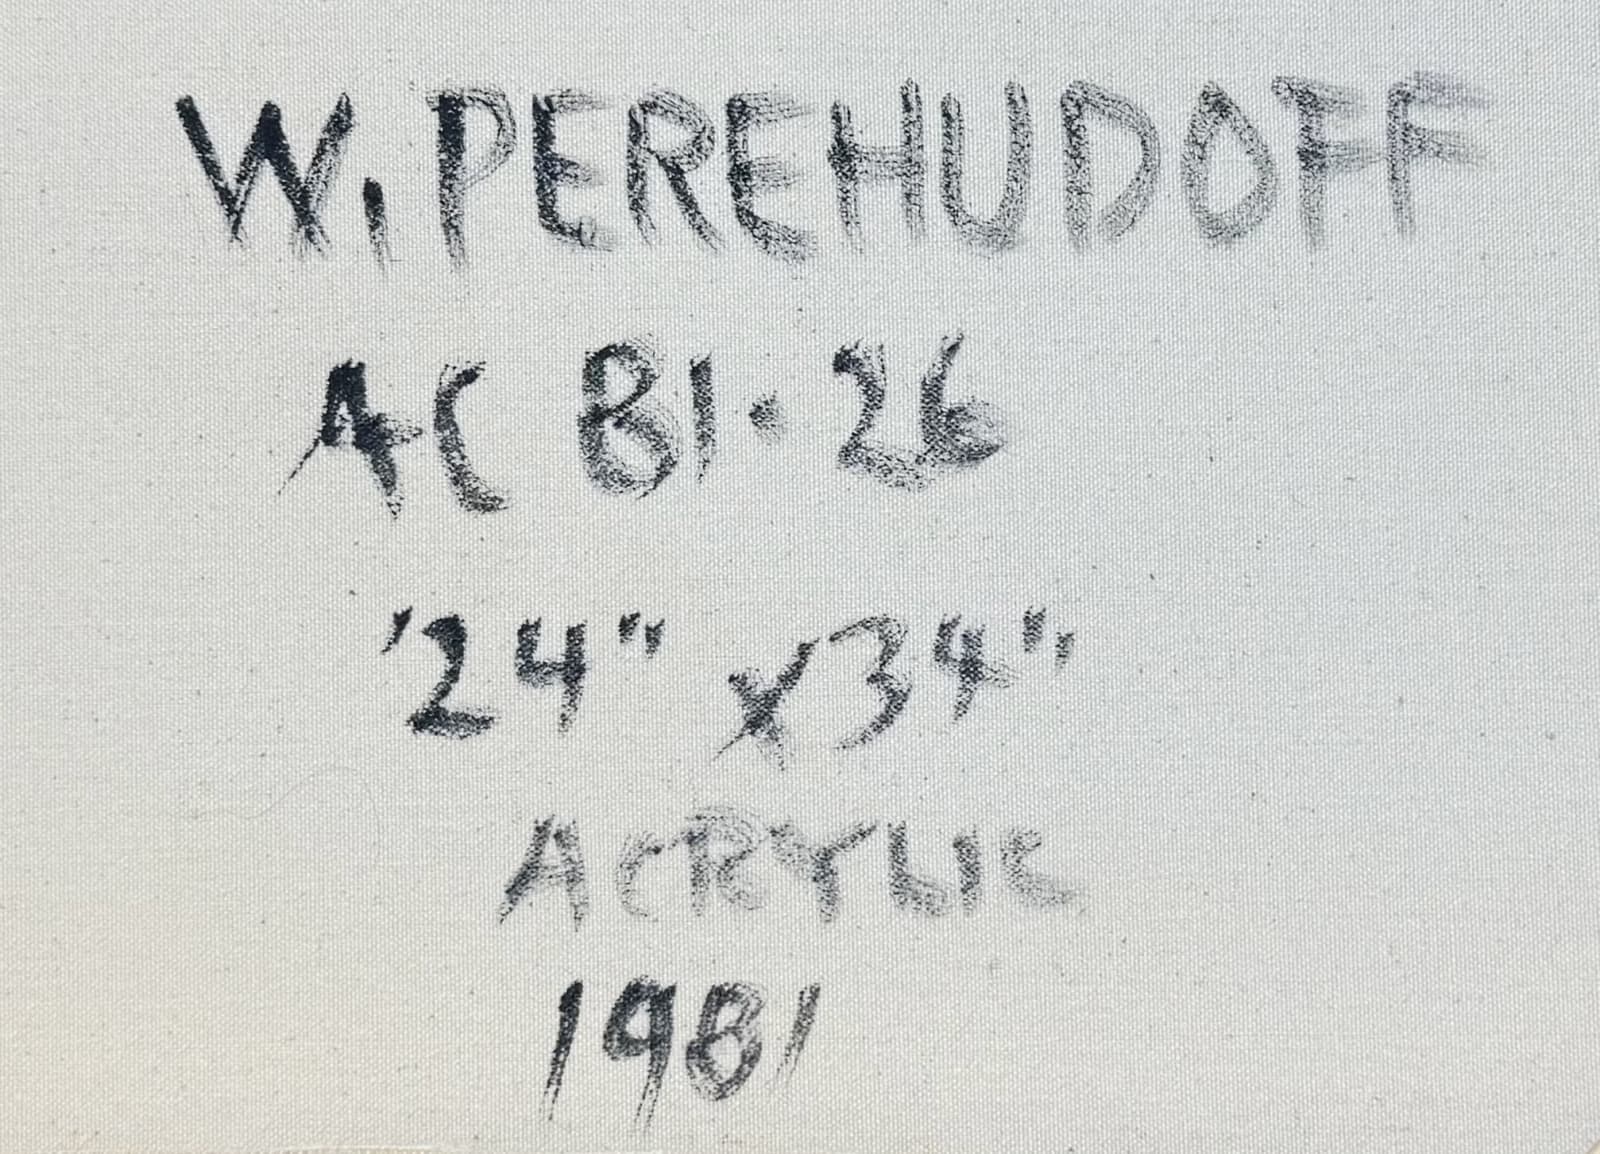 W. PEREHUDOFF
AC 81·26
'24" x 34"
ACRYLIC
1981